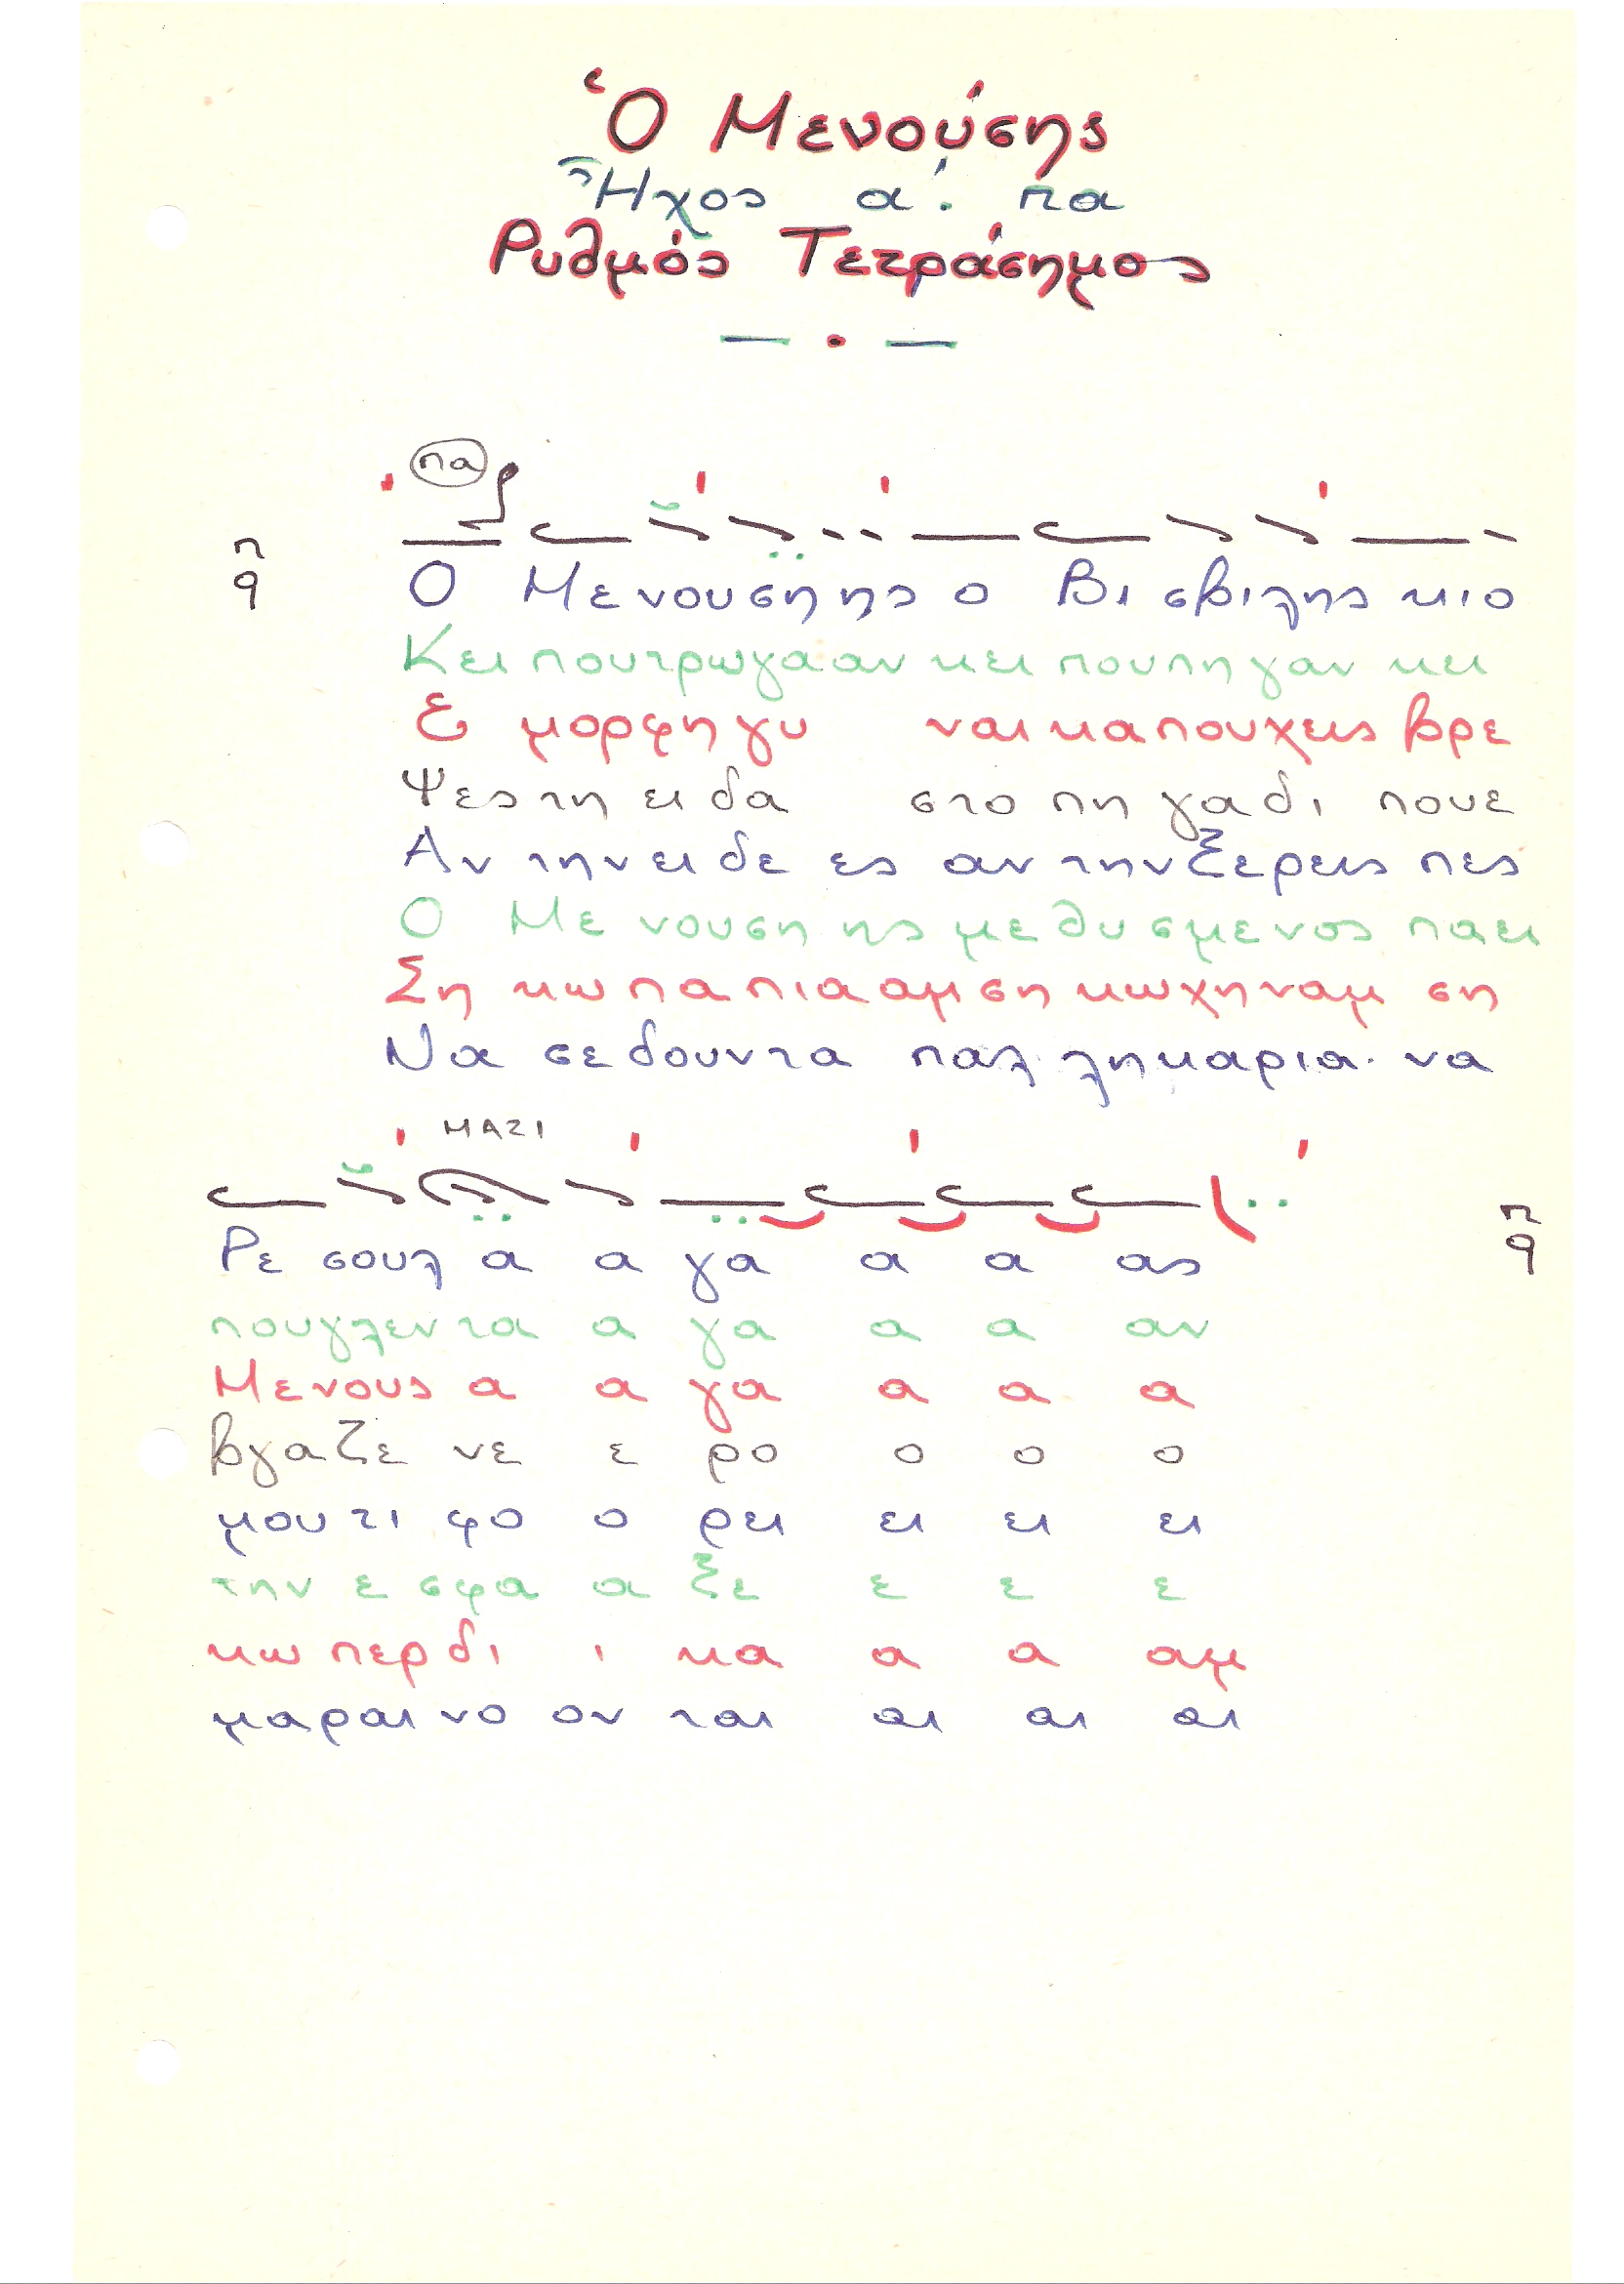 Ὁ Μενούσης
Ἦχος α΄. πα
Ρυθμός Τετράσημος
πα
π
q
Ο Μενουσηης ο Βι σβιλης κι ο
Κει πουτρωγααν κει πουπηγαν κει
Ε μορφη γυ ναικα πουχεις βρε
Ψες τη ει δα στο πη γαδι που ε
Αν την ει δε ες αν την ξερεις πες
Ο Με νουση ης με θυ σμενος παει
Ση κω πα πιααμ ση κω χηναμ ση
Να σε δουν τα παλ ληκαρια να
ΜΑΖΙ
π
q
Ρε σουλ α α γα α α ας
πουγλεν τα α γα α α αν
Μενους α α γα α α α
βγαζε νε ε ρο ο ο ο
μου τι φο ο ρει ει ει ει
την ε σφα α ξε ε ε ε
κω περ δι ι κα α α αμ
μαραι νο ον ται αι αι αι